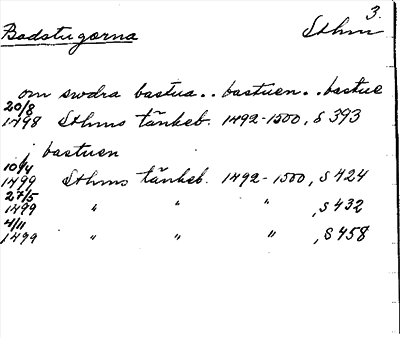 3.
Badstugorna Sthm
om swdra bastua.. bastuen.. bastue
20/8
1498 Sthms tänkeb. 1492-1500, s 393
i bastuen
10/4
1499 Sthms tänkeb. 1492-1500, s 424
27/5
1499 " " " , s 432
4/11
1499 " " " , s 458